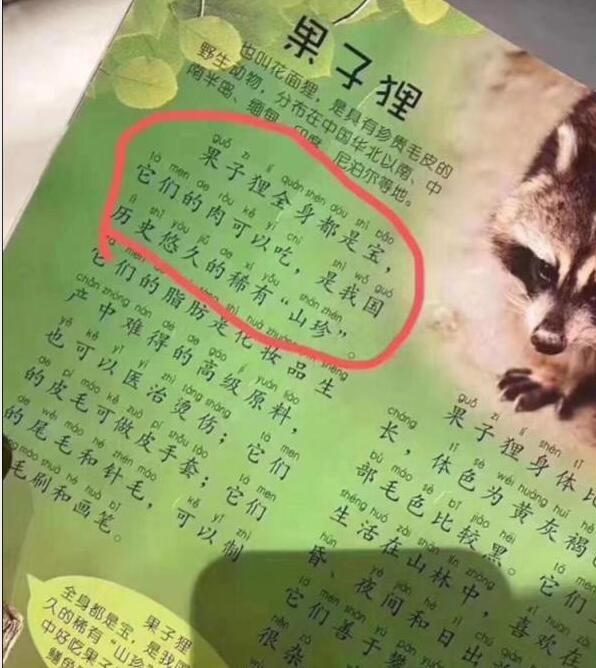 果子狸
也叫花面狸，是具有珍贵毛皮的
野生动物，分布在中国华北以南、中
南半岛、缅甸、印度、尼泊尔等地。
guǒ zi lí quán shēn dōu shì bǎo
果子狸全身都是宝，
tā men de ròu kě yǐ chī shì wǒ guó
它们的肉可以吃，是我国
lì shǐ yōu jiǔ de xī yǒu shān zhēn
历史悠久的稀有“山珍”。
men de shì huà zhuāng shēng
它们的脂肪是化妆品生
chǎn zhōng nán dé de gāo jí yuán liào
产中难得的高级原料，
yě kě yǐ yī zhì tàng shāng tā men
也可以医治烫伤；它们
de pí máo kě zuò pí shǒu tào tā men
的皮毛可做皮手套；它们
de wěi máo hé zhēn máo kě yǐ zhì
的尾毛和针毛，可以制
máo shuā hé huà bǐ
毛刷和画笔。
guǒ zi lí shēn tǐ
果子狸身体比
cháng tǐ sè wéi huáng huī hè
长，体色为黄灰褐
bù máo sè bǐ jiào hēi
部毛色比较黑。它们
shēng huó zài shān lín zhōng xǐ huān zài
生活在山林中，喜欢在
hūn yè jiān hé rì chū
昏、夜间和日出
tā men shàn yú pān
它们善于攀
hěn zá
很杂
果子狸
全身都是宝，是我国
久的稀有“山珍
中好吃果子